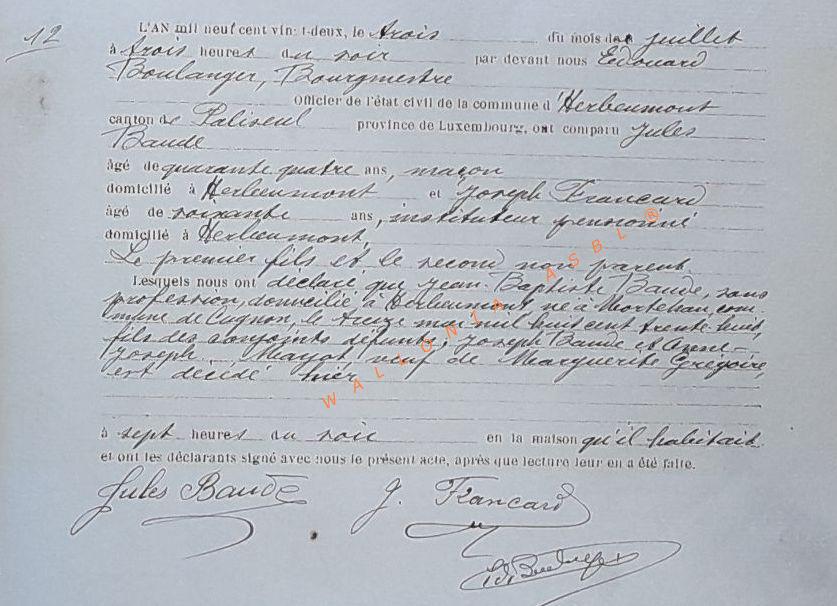 12
L'AN mil neuf cent vingt-deux, le trois du mois de juillet
à trois heures du soir par devant nous Edouard
Boulanger, Bourgmestre
Officier de l'état civil de la commune d'Herbeumont
canton de Paliseul province de Luxembourg, ont comparu Jules
Baude
âgé de quarante quatre ans, maçon
domicilié à Herbeumont et Joseph Francard
âgé de soixante ans, instituteur pensionné
domicilié à Herbeumont,
Le premier fils et le second non parent
Lesquels nous ont déclaré que Jean-Baptiste Baude, sans
profession, domicilié à Herbeumont né à Mortehan, com-
mune de Cugnon, le treize mai mil huit cent trente huit,
fils des conjoints défunts, Joseph Baude et Anne-
Joseph Mayot veuf de Marguerite Grégoire,
est décédé hier
à sept heures du soir en la maison qu'il habitait
et ont les déclarants signé avec nous le présent acte, après que lecture leur en a été faite.
Jules Baude J. Francard
WALLONIA ASBL ®